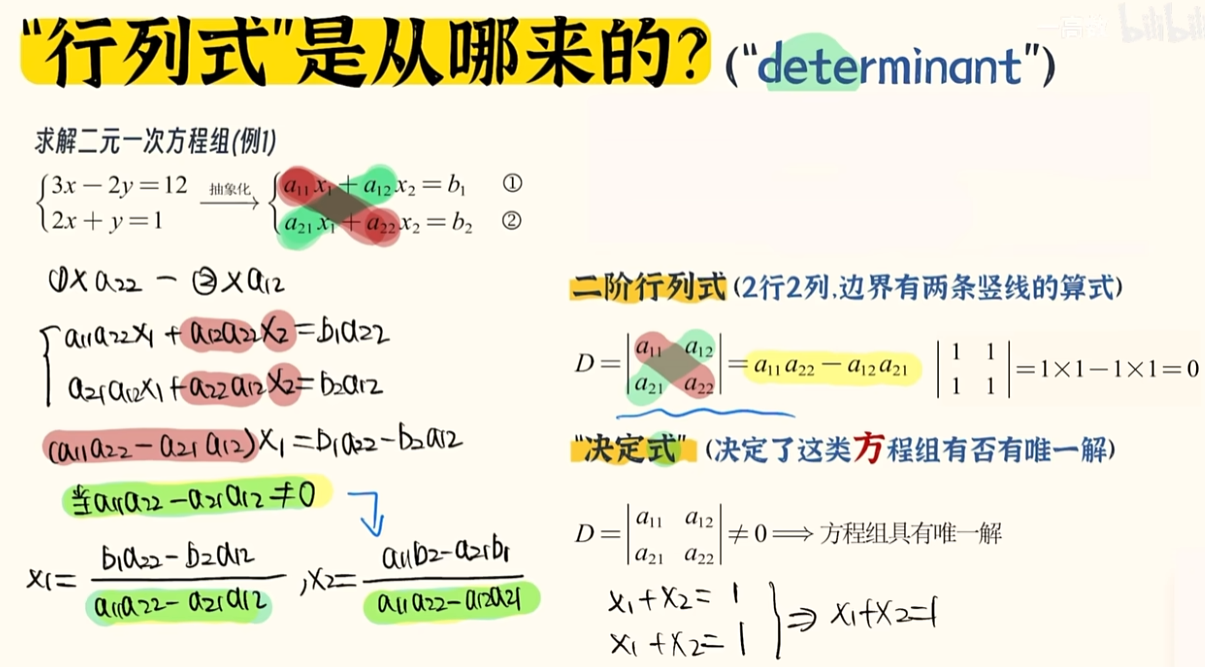 “行列式”是从哪来的? (“determinant”)
bilibili
求解二元一次方程组(例1)
{3x－2y＝12 抽象化→ {a₁₁x₁＋a₁₂x₂＝b₁ ①
2x＋y＝1 a₂₁x₁＋a₂₂x₂＝b₂ ②
①×a₂₂－②×a₁₂
{a₁₁a₂₂x₁＋a₁₂a₂₂x₂＝b₁a₂₂
a₂₁a₁₂x₁＋a₂₂a₁₂x₂＝b₂a₁₂
(a₁₁a₂₂－a₂₁a₁₂)x₁＝b₁a₂₂－b₂a₁₂
当a₁₁a₂₂－a₂₁a₁₂≠0
x₁＝(b₁a₂₂－b₂a₁₂)/(a₁₁a₂₂－a₂₁a₁₂), x₂＝(a₁₁b₂－a₂₁b₁)/(a₁₁a₂₂－a₁₂a₂₁)
二阶行列式(2行2列,边界有两条竖线的算式)
D＝|a₁₁ a₁₂|＝a₁₁a₂₂－a₁₂a₂₁ |1 1|＝1×1－1×1＝0
|a₂₁ a₂₂| |1 1|
“决定式”(决定了这类方程组有否有唯一解)
D＝|a₁₁ a₁₂|≠0⟹方程组具有唯一解
|a₂₁ a₂₂|
x₁＋x₂＝1
x₁＋x₂＝1 }⇒x₁＋x₂＝1